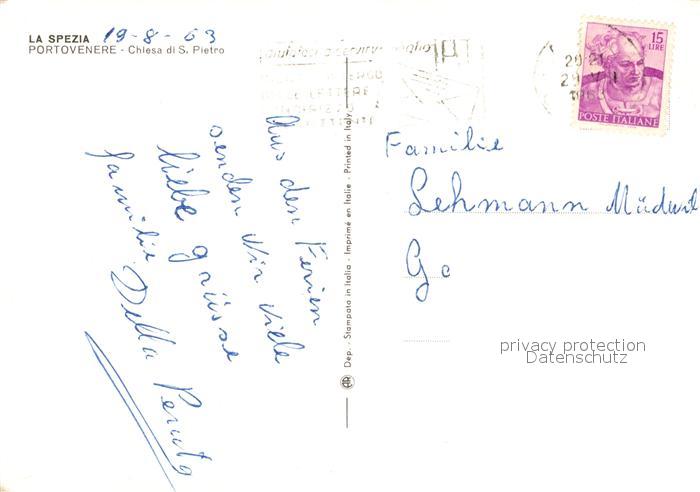 LA SPEZIA 19-8-63
PORTOVENERE - Chiesa di S. Pietro
Aus den Ferien
senden Wir viele
liebe grüsse
familie Della Peruta
Dep. Stampato in Italia - Imprimé en Italie - Printed in Italy
15
LIRE
POSTE ITALIANE
20-21
Familie
Lehmann
Ge
privacy protection
Datenschutz